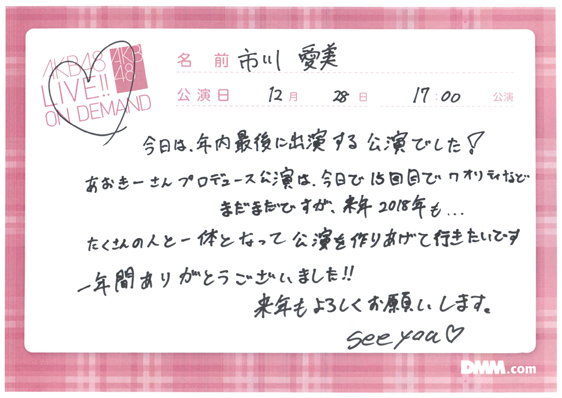 AKB48
LIVE!!
ON DEMAND
AKB
48
名前 市川 愛美
公演日 12月 28日 17:00 公演
今日は、年内最後に出演する公演でした!
あおきーさんプロデュース公演は、今日で15回目でクオリティなど
まだまだですが、来年2018年も...
たくさんの人と一体となって公演を作りあげて行きたいです
一年間ありがとうございました!!
来年もよろしくお願いします。
see you♡
DMM.com